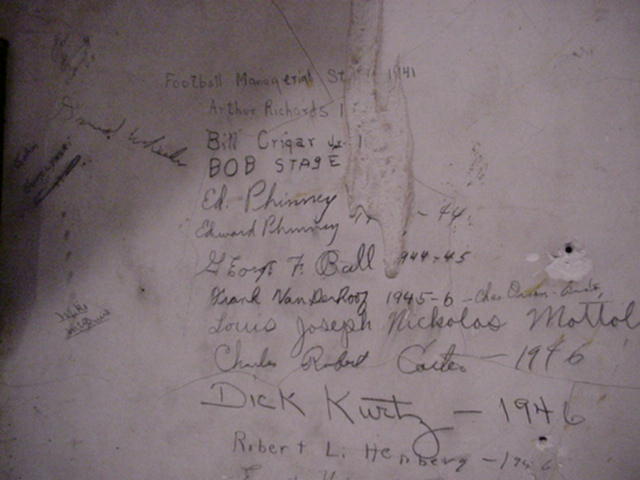 Football Managerial St 1941
Arthur Richards 1
Bill Crigar Jr. 1
BOB STAGE
Ed. Phinney
Edward Phinney - 44
George F. Ball 1944-45
Frank VanDerRoof 1945-6
Louis Joseph Nickolas Mottol
Charles Robert - 1946
Dick Kurtz - 1946
Robert L. Henberg - 1946